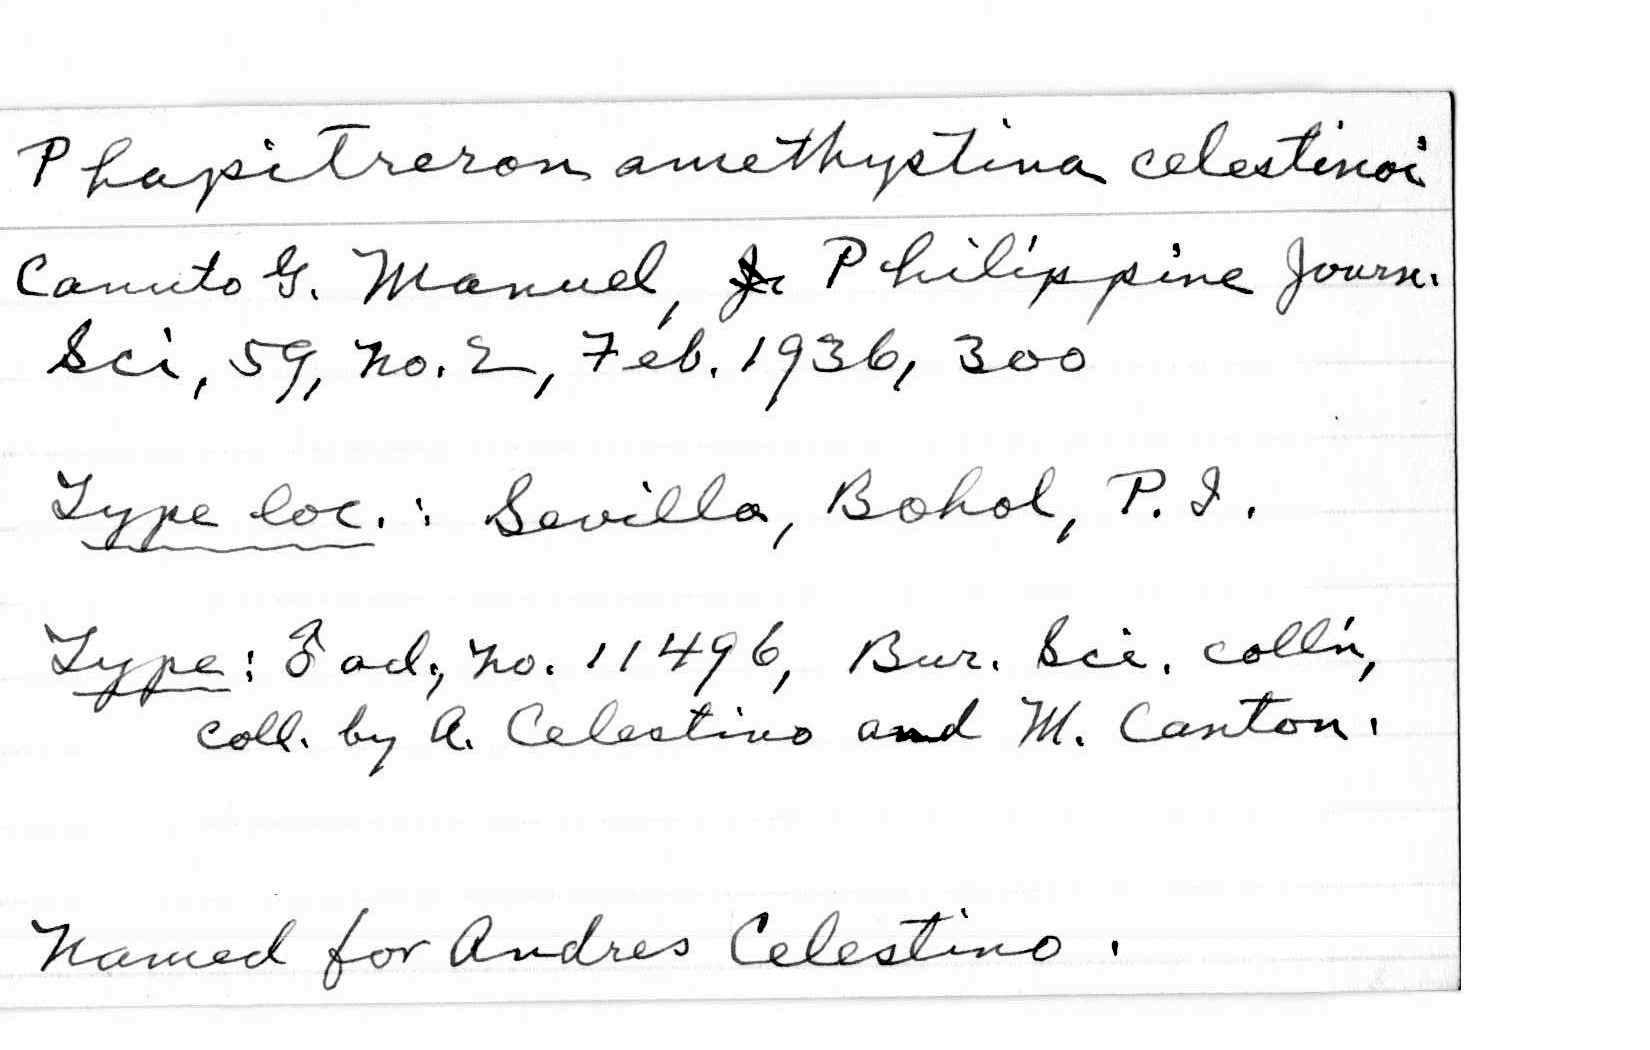 Phapitreron amethystina celestinoi
Canuto G. Manuel, Philippine Journ.
Sci, 59, No. 2, Feb. 1936, 300
Type loc.: Sevilla, Bohol, P. I.
Type: ♂ ad., No. 11496, Bur. Sci. coll'n,
coll. by A. Celestino and M. Canton.
Named for Andres Celestino.